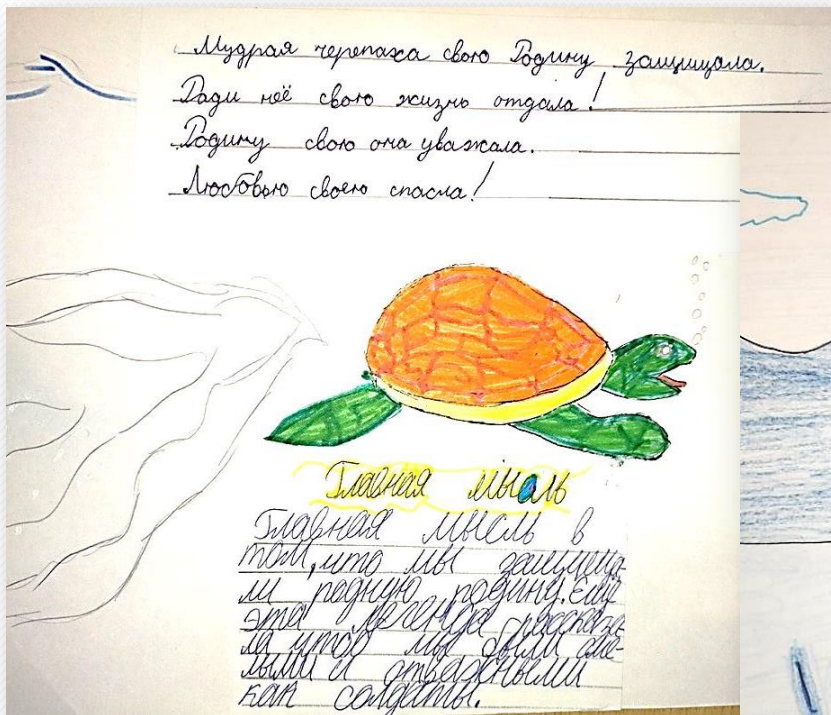 Мудрая черепаха свою Родину защищала.
Ради неё свою жизнь отдала!
Родину свою она уважала.
Любовью своею спасла!
Главная мысль
Главная мысль в
том, что мы защища-
ли родную родину. Ещё
эта легенда рассказа-
ла чтоб мы были сме-
лыми и отважными
как солдаты.